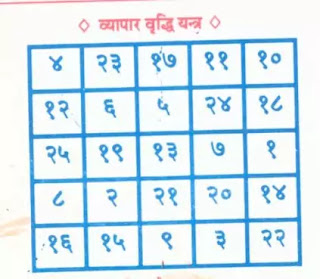 ◇ व्यापार वृद्धि यन्त्र ◇
४ २३ १७ ११ १०
१२ ६ ५ २४ १८
२५ १९ १३ ७ १
८ २ २१ २० १४
१६ १५ ९ ३ २२